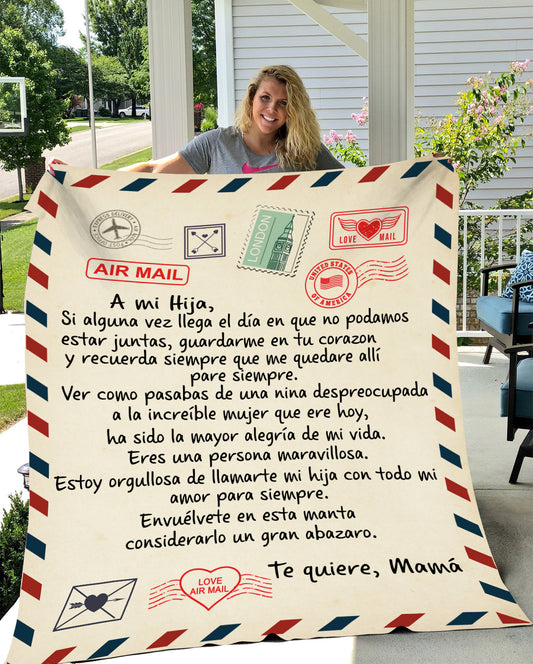 EXPRESS DELIVERY
POST
LONDON
LOVE MAIL
AIR MAIL
UNITED STATES
OF AMERICA
A mi Hija,
Si alguna vez llega el día en que no podamos
estar juntas, guardarme en tu corazon
y recuerda siempre que me quedare allí
pare siempre.
Ver como pasabas de una nina despreocupada
a la increíble mujer que ere hoy,
ha sido la mayor alegría de mi vida.
Eres una persona maravillosa.
Estoy orgullosa de llamarte mi hija con todo mi
amor para siempre.
Envuélvete en esta manta
considerarlo un gran abazaro.
Te quiere, Mamá
LOVE
AIR MAIL